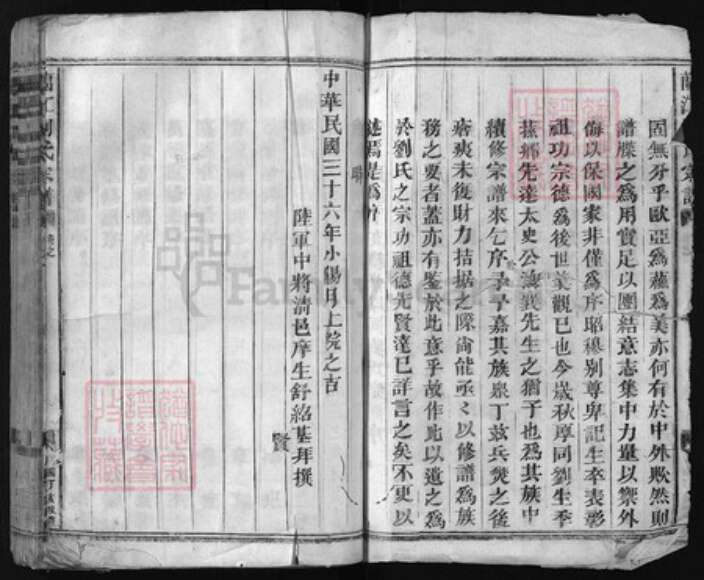 固無分乎歐亞為蘊為美亦何有於中外歟然則
譜牒之為用實足以團結意志集中力量以禦外
侮以保國家非僅為序昭穆別尊卑記生卒表彰
祖功宗德為後世美觀已也今歲秋厚同劉生季
蓀鄉先達太史公海巽先生之猶子也為其族中
續修宗譜來乞序予予嘉其族眾丁茲兵燹之後
瘡痍未復財力拮据之際尚能亟亟以修譜為族
務之要者蓋亦有鑒於此意乎故作此以遺之為
於劉氏之宗功祖德先賢達已詳言之矣不更以
焉是為序
中華民國三十六年小陽月上院之吉
陸軍中將清邑庠生舒紹基拜撰
賢
劉氏宗譜